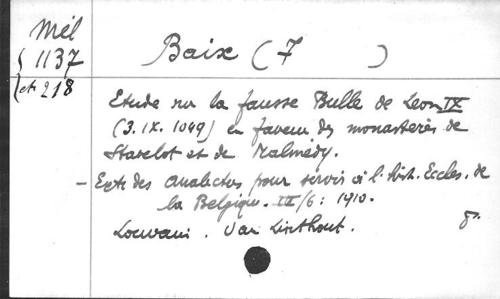 Mél
1137
et 218
Baix (F )
Etude sur la fausse Bulle de Leon IX
(3. IX. 1049) en faveur des monastères de
Stavelot et de Malmédy.
- Extr. des Analectes pour servir à l'hist. Eccles. de
la Belgique. III/6 : 1910.
Louvain. Van Linthout. 8º